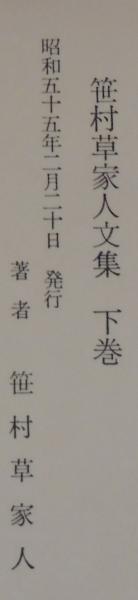 笹村草家人文集　下巻
昭和五十五年二月二十日　発行
著者　笹村草家人